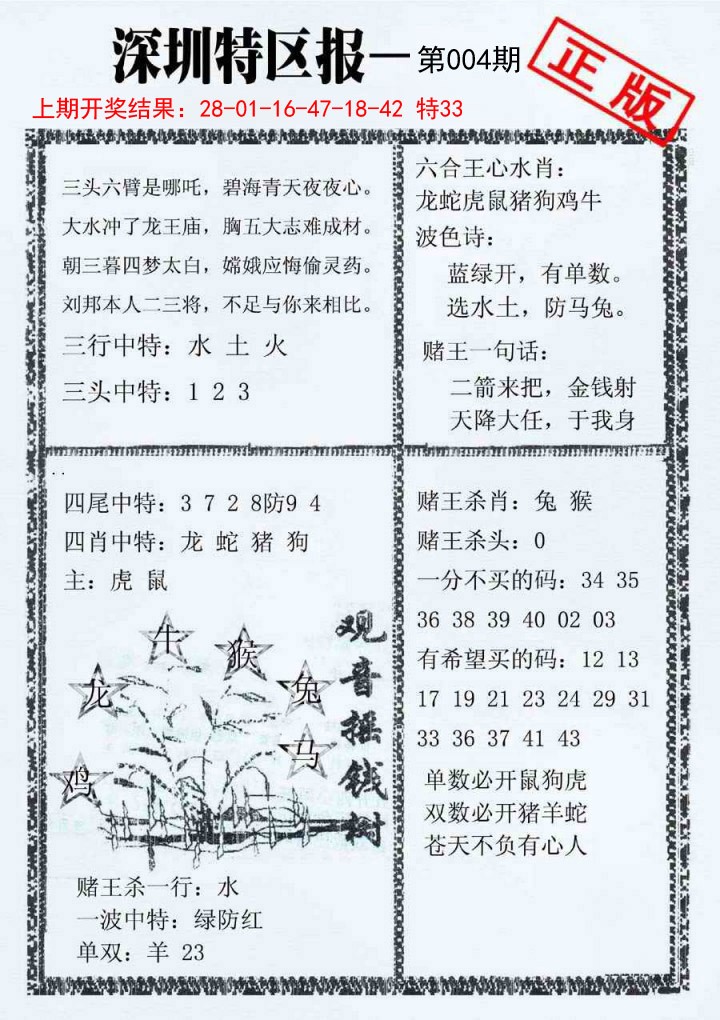 深圳特区报—第004期
正版
上期开奖结果：28-01-16-47-18-42 特33
三头六臂是哪吒，碧海青天夜夜心。
大水冲了龙王庙，胸五大志难成材。
朝三暮四梦太白，嫦娥应悔偷灵药。
刘邦本人二三将，不足与你来相比。
三行中特：水 土 火
三头中特：1 2 3
六合王心水肖：
龙蛇虎鼠猪狗鸡牛
波色诗：
蓝绿开，有单数。
选水土，防马兔。
赌王一句话：
二箭来把，金钱射
天降大任，于我身
四尾中特：3 7 2 8防9 4
四肖中特：龙 蛇 猪 狗
主：虎 鼠
牛
猴
龙
兔
马
鸡
观音摇钱树
赌王杀一行：水
一波中特：绿防红
单双：羊 23
赌王杀肖：兔 猴
赌王杀头：0
一分不买的码：34 35
36 38 39 40 02 03
有希望买的码：12 13
17 19 21 23 24 29 31
33 36 37 41 43
单数必开鼠狗虎
双数必开猪羊蛇
苍天不负有心人